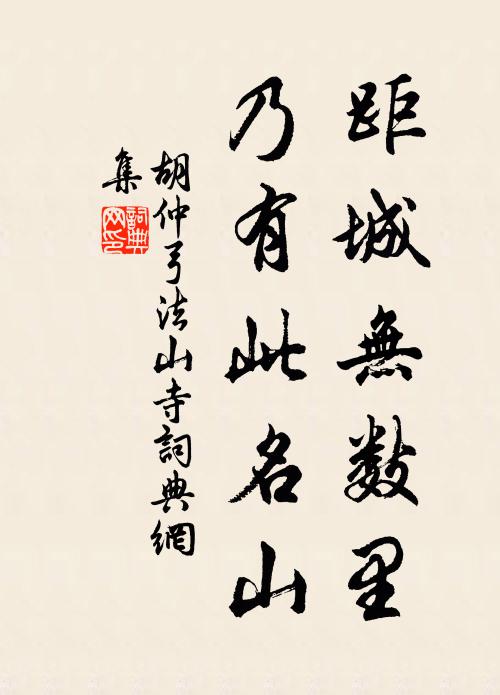 距城無數里
乃有此名山
胡仲弓法山寺詞典網
集
詞典
网印